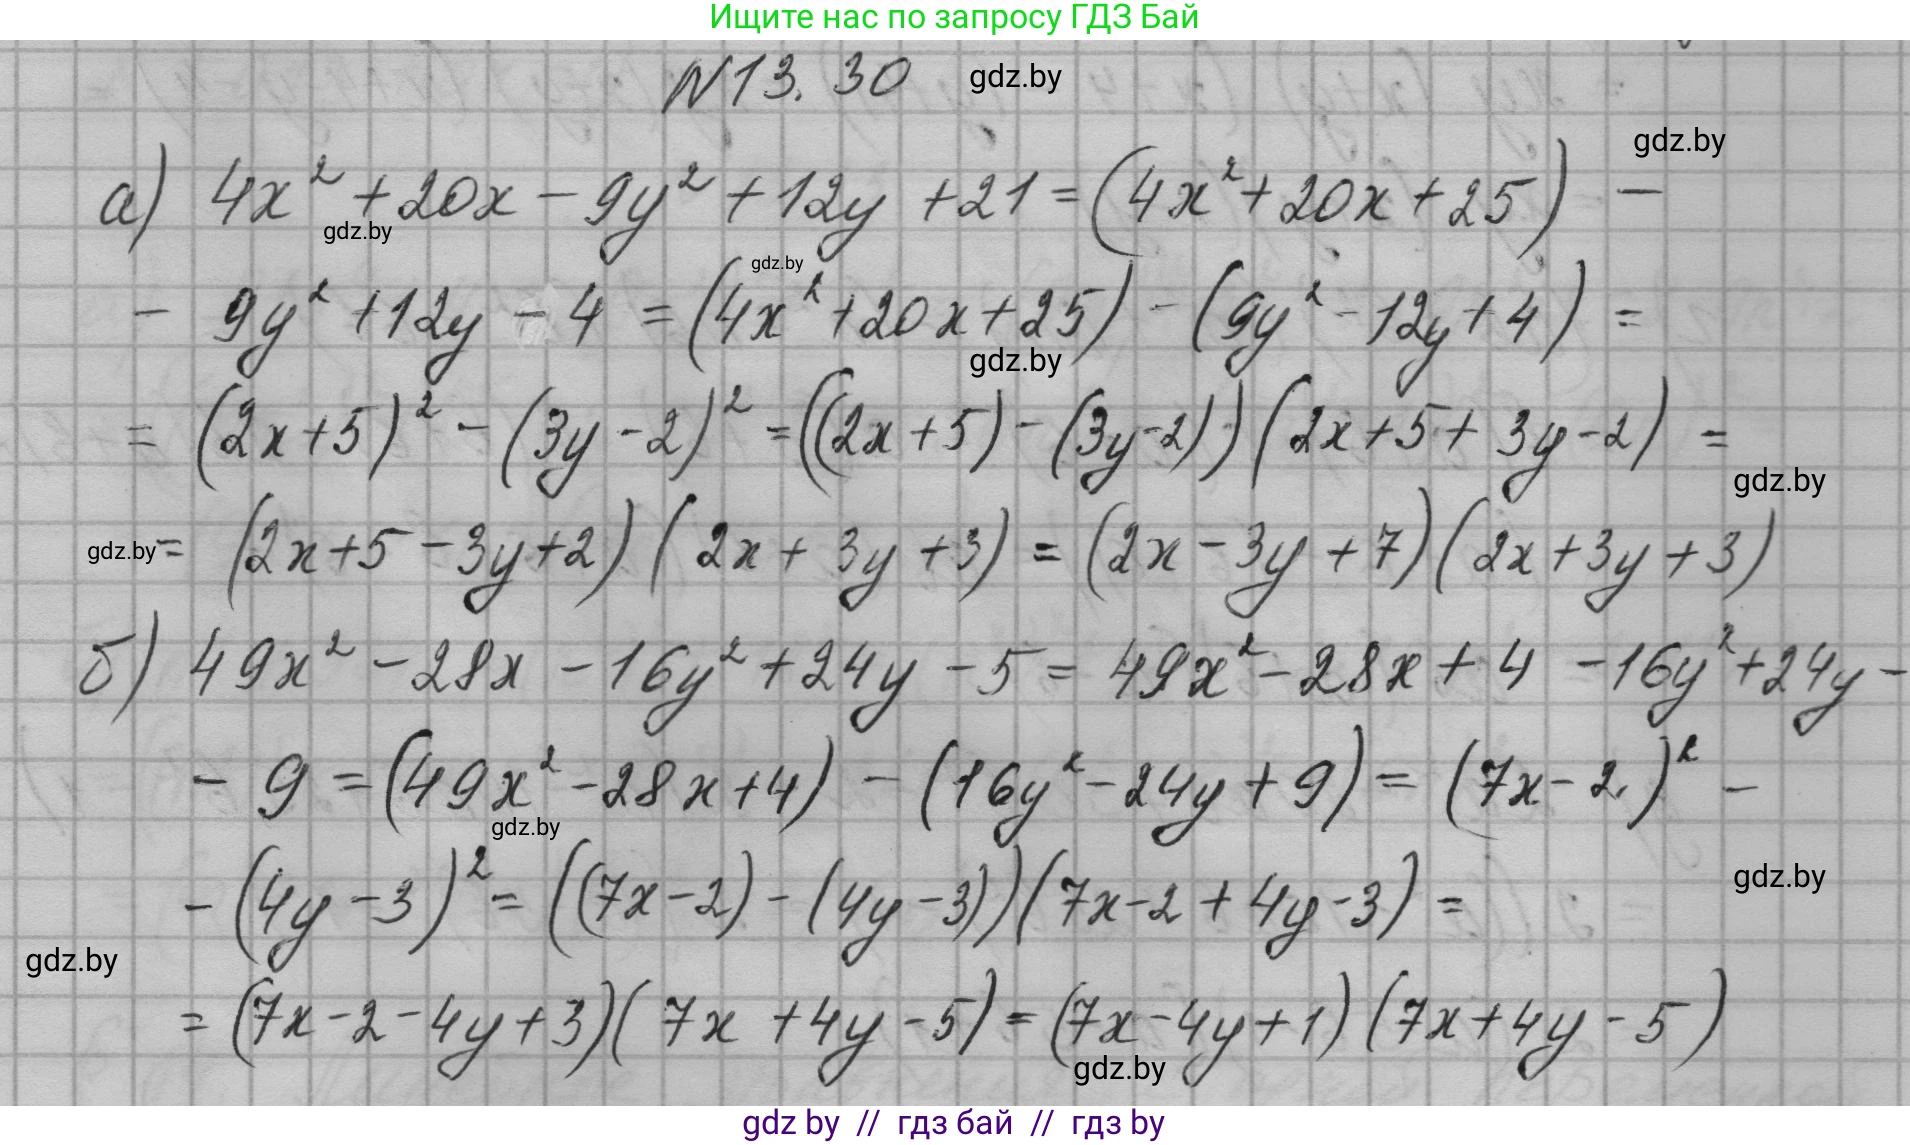 Ищите нас по запросу ГДЗ Бай
N13. 30 gdz.by
gdz.by
а) 4x² + 20x - 9y² + 12y + 21 = (4x² + 20x + 25) -
gdz.by
gdz.by
- 9y² + 12y - 4 = (4x² + 20x + 25) - (9y² - 12y + 4) =
gdz.by
= (2x + 5)² - (3y - 2)² = ((2x + 5) - (3y - 2)) (2x + 5 + 3y - 2) =
gdz.by
gdz.by = (2x + 5 - 3y + 2) (2x + 3y + 3) = (2x - 3y + 7) (2x + 3y + 3)
б) 49x² - 28x - 16y² + 24y - 5 = 49x² - 28x + 4 - 16y² + 24y -
- 9 = (49x² - 28x + 4) - (16y² - 24y + 9) = (7x - 2)² -
gdz.by
gdz.by
- (4y - 3)² = ((7x - 2) - (4y - 3)) (7x - 2 + 4y - 3) =
gdz.by
= (7x - 2 - 4y + 3) (7x + 4y - 5) = (7x - 4y + 1) (7x + 4y - 5)
gdz.by
gdz by // гдз бай // гдз by